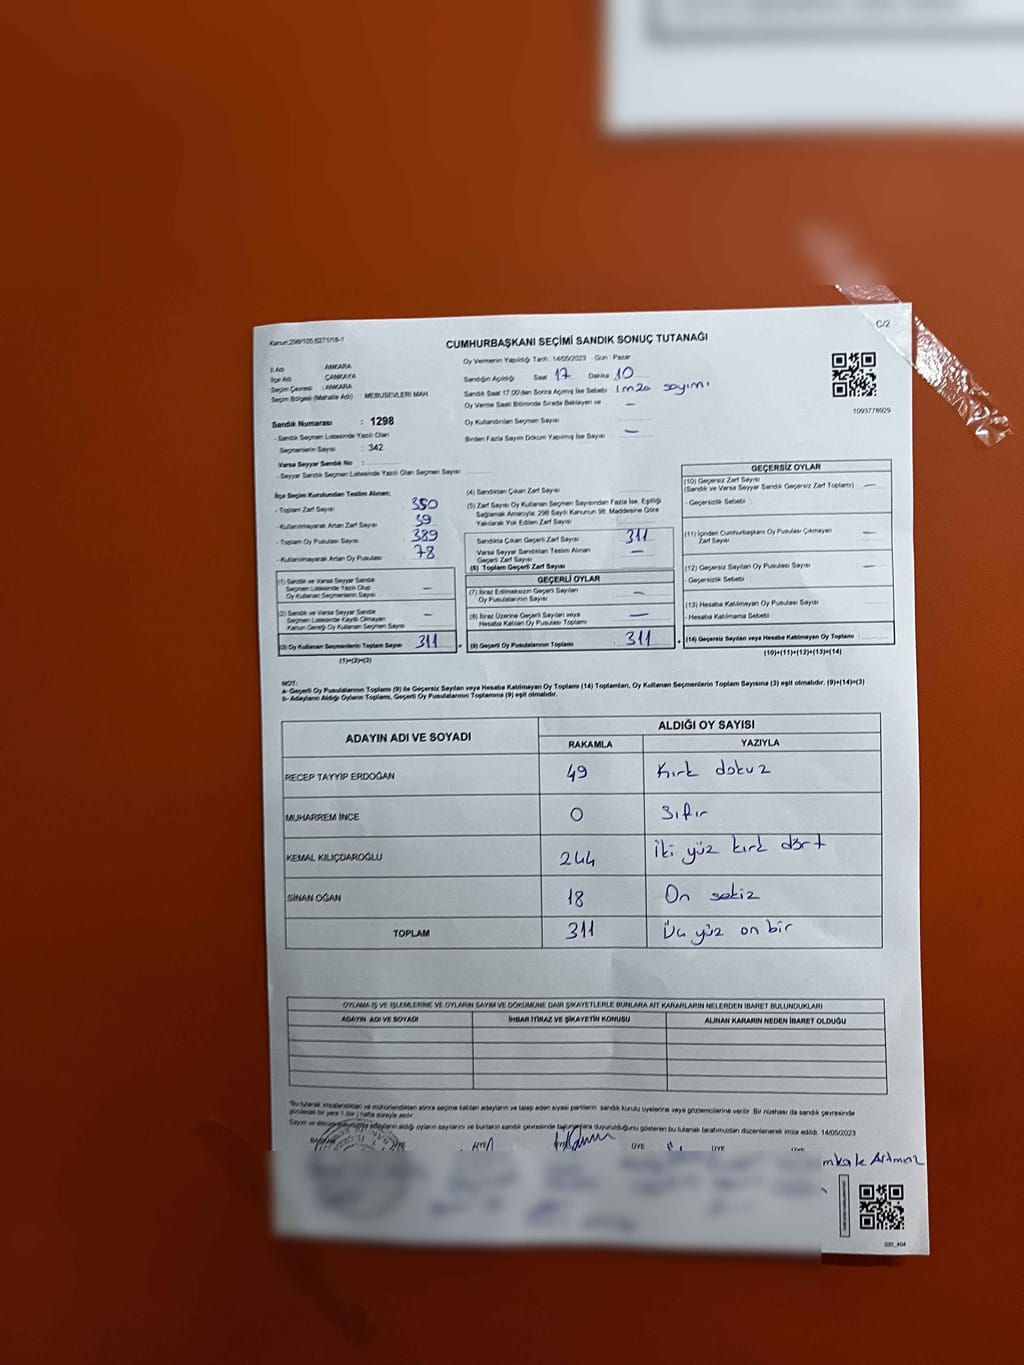 Kanun:298/105.6271/18-1
C/2
CUMHURBAŞKANI SEÇİMİ SANDIK SONUÇ TUTANAĞI
İl Adı : ANKARA
İlçe Adı : ÇANKAYA
Seçim Çevresi : ANKARA
Seçim Bölgesi (Mahalle Adı) : MEBUSEVLERİ MAH
Oy Vermenin Yapıldığı Tarih : 14/05/2023 Gün : Pazar
Sandığın Açıldığı Saat 17 Dakika 10
Sandık Saat 17:00'den Sonra Açılmış İse Sebebi : imza sayımı
Oy Verme Saati Bitiminde Sırada Bekleyen ve —
Oy Kullandırılan Seçmen Sayısı
Birden Fazla Sayım Döküm Yapılmış İse Sayısı —
1093778929
Sandık Numarası : 1298
- Sandık Seçmen Listesinde Yazılı Olan
Seçmenlerin Sayısı : 342
Varsa Seyyar Sandık No :
- Seyyar Sandık Seçmen Listesinde Yazılı Olan Seçmen Sayısı
İlçe Seçim Kurulundan Teslim Alınan;
- Toplam Zarf Sayısı 350
- Kullanılmayarak Artan Zarf Sayısı 39
- Toplam Oy Pusulası Sayısı 389
- Kullanılmayarak Artan Oy Pusulası 78
(1) Sandık ve Varsa Seyyar Sandık
Seçmen Listesinde Yazılı Olup
Oy Kullanan Seçmenlerin Sayısı —
(2) Sandık ve Varsa Seyyar Sandık
Seçmen Listesinde Kayıtlı Olmayan
Kanun Gereği Oy Kullanan Seçmen Sayısı —
(3) Oy Kullanan Seçmenlerin Toplam Sayısı 311
(1)+(2)=(3)
(4) Sandıktan Çıkan Zarf Sayısı
(5) Zarf Sayısı Oy Kullanan Seçmen Sayısından Fazla İse, Eşitliği
Sağlamak Amacıyla, 298 Sayılı Kanunun 98. Maddesine Göre
Yakılarak Yok Edilen Zarf Sayısı
Sandıkta Çıkan Geçerli Zarf Sayısı 311
Varsa Seyyar Sandıktan Teslim Alınan
Geçerli Zarf Sayısı —
(6) Toplam Geçerli Zarf Sayısı
GEÇERLİ OYLAR
(7) İtiraz Edilmeksizin Geçerli Sayılan
Oy Pusulalarının Sayısı —
(8) İtiraz Üzerine Geçerli Sayılan veya
Hesaba Katılan Oy Pusulası Toplamı —
(9) Geçerli Oy Pusulalarının Toplamı 311
GEÇERSİZ OYLAR
(10) Geçersiz Zarf Sayısı
(Sandık ve Varsa Seyyar Sandık Geçersiz Zarf Toplamı) —
- Geçersizlik Sebebi :
(11) İçinden Cumhurbaşkanı Oy Pusulası Çıkmayan
Zarf Sayısı —
(12) Geçersiz Sayılan Oy Pusulası Sayısı —
- Geçersizlik Sebebi
(13) Hesaba Katılmayan Oy Pusulası Sayısı
- Hesaba Katılmama Sebebi
(14) Geçersiz Sayılan veya Hesaba Katılmayan Oy Toplamı
(10)+(11)+(12)+(13)=(14)
NOT:
a- Geçerli Oy Pusulalarının Toplamı (9) ile Geçersiz Sayılan veya Hesaba Katılmayan Oy Toplamı (14) Toplamları, Oy Kullanan Seçmenlerin Toplam Sayısına (3) eşit olmalıdır. (9)+(14)=(3)
b- Adayların Aldığı Oyların Toplamı, Geçerli Oy Pusulalarının Toplamına (9) eşit olmalıdır.
ADAYIN ADI VE SOYADI
ALDIĞI OY SAYISI
RAKAMLA YAZIYLA
RECEP TAYYİP ERDOĞAN 49 Kırk dokuz
MUHARREM İNCE 0 Sıfır
KEMAL KILIÇDAROĞLU 244 İki yüz kırk dört
SİNAN OĞAN 18 On sekiz
TOPLAM 311 Üç yüz on bir
OYLAMA İŞ VE İŞLEMLERİNE VE OYLARIN SAYIM VE DÖKÜMÜNE DAİR ŞİKAYETLERLE BUNLARA AİT KARARLARIN NELERDEN İBARET BULUNDUKLARI
ADAYIN ADI VE SOYADI İHBAR İTİRAZ VE ŞİKAYETİN KONUSU ALINAN KARARIN NEDEN İBARET OLDUĞU
"Bu tutanak imzalandıktan ve mühürlendikten sonra seçime katılan adayların ve talep eden siyasi partilerin sandık kurulu üyelerine veya gözlemcilerine verilir. Bir nüshası da sandık çevresinde
görülecek bir yere 1 (bir) hafta süreyle asılır.
Sayım ve döküm sonucunda adayların aldığı oyların sayılarını ve bunların sandık çevresinde
bu tutanak tarafımızdan düzenlenerek imza edildi. 14/05/2023
BAŞKAN ÜYE ÜYE ÜYE